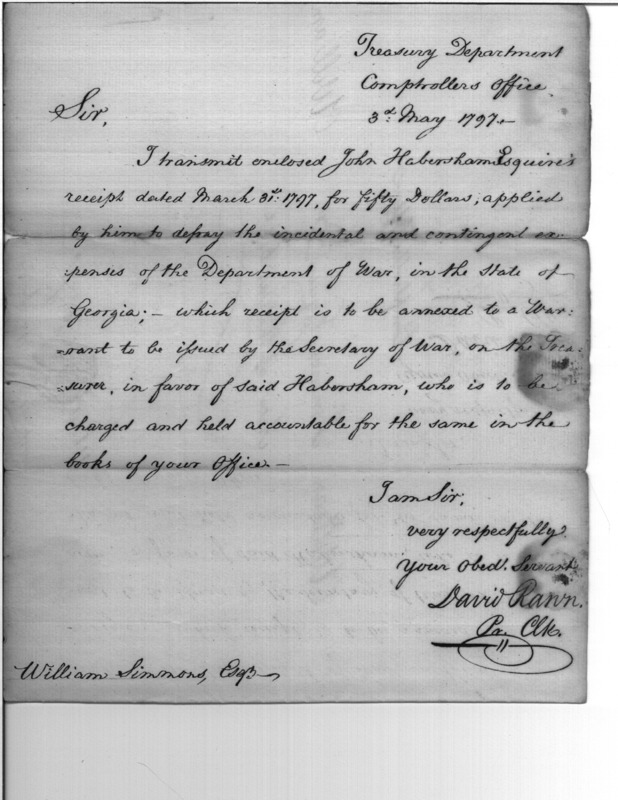 Treasury Department
Comptrollers Office.
3d. May 1797.
Sir,
I transmit enclosed John Habersham Esquire's
receipt dated March 31st. 1797, for fifty Dollars, applied
by him to defray the incidental and contingent ex-
penses of the Department of War, in the State of
Georgia; — which receipt is to be annexed to a War:
rant to be issued by the Secretary of War, on the Trea:
:surer, in favor of said Habersham, who is to be
charged and held accountable for the same in the
books of your Office. —
I am Sir,
very respectfully
your Obed. Servant
David Rawn.
Pr. Clk.
William Simmons, Esqr.